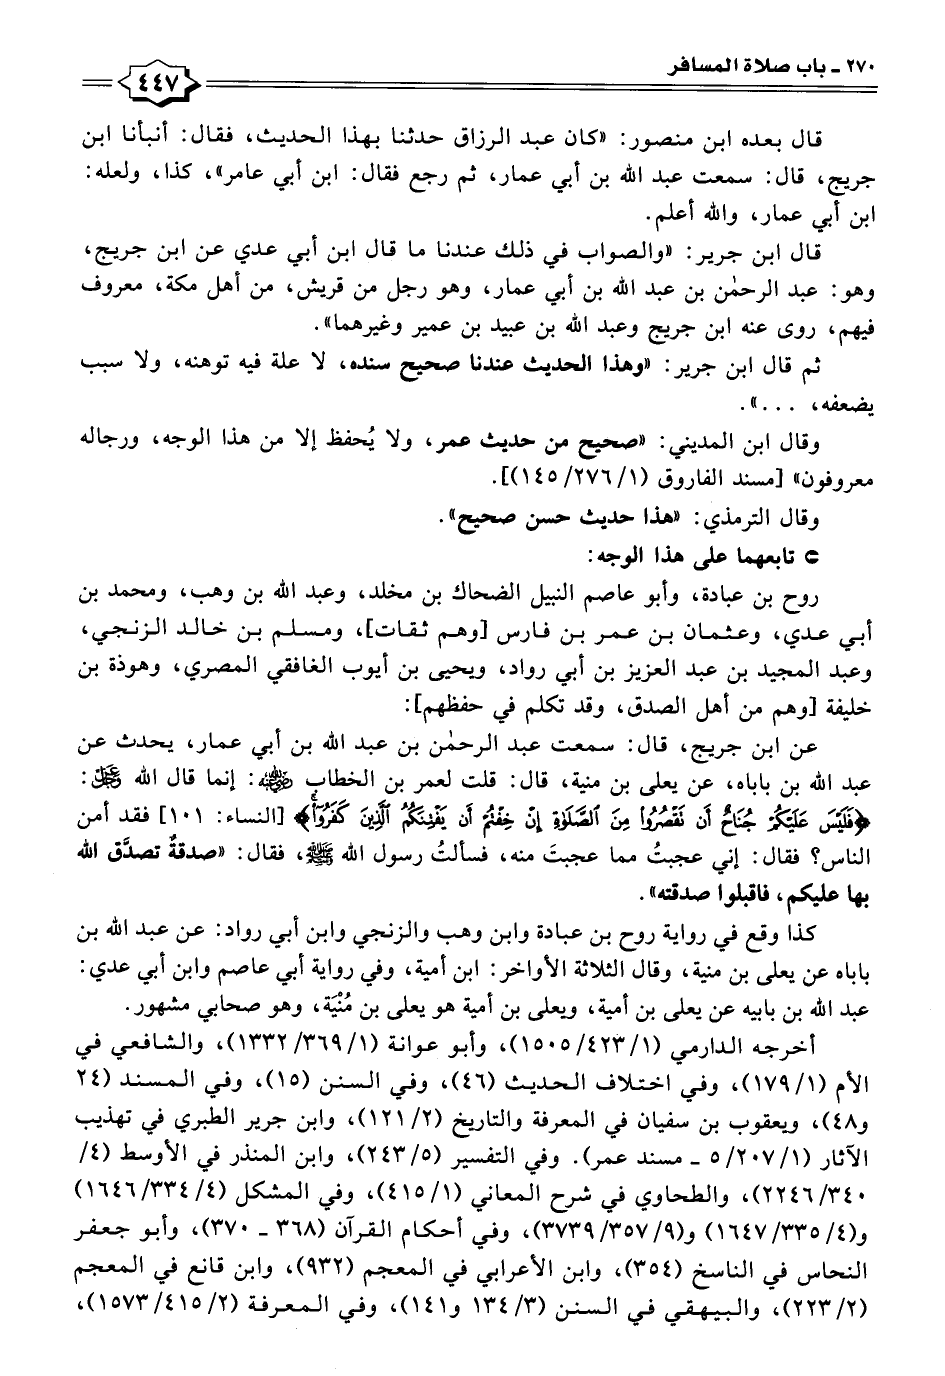 ٢٧٠ ـ باب صلاة المسافر
٤٤٧
قال بعده ابن منصور: «كان عبد الرزاق حدثنا بهذا الحديث، فقال: أنبأنا ابن
جريج، قال: سمعت عبد الله بن أبي عمار، ثم رجع فقال: ابن أبي عامر»، كذا، ولعله:
ابن أبي عمار، والله أعلم.
قال ابن جرير: «والصواب في ذلك عندنا ما قال ابن أبي عدي عن ابن جريج،
وهو: عبد الرحمٰن بن عبد الله بن أبي عمار، وهو رجل من قريش، من أهل مكة، معروف
فيهم، روى عنه ابن جريج وعبد الله بن عبيد بن عمير وغيرهما».
ثم قال ابن جرير: «وهذا الحديث عندنا صحيح سنده، لا علة فيه توهنه، ولا سبب
يضعفه، ...».
وقال ابن المديني: «صحيح من حديث عمر، ولا يُحفظ إلا من هذا الوجه، ورجاله
معروفون» [مسند الفاروق (١/ ٢٧٦/ ١٤٥)].
وقال الترمذي: «هذا حديث حسن صحيح».
⊃ تابعهما على هذا الوجه:
روح بن عبادة، وأبو عاصم النبيل الضحاك بن مخلد، وعبد الله بن وهب، ومحمد بن
أبي عدي، وعثمان بن عمر بن فارس [وهم ثقات]، ومسلم بن خالد الزنجي،
وعبد المجيد بن عبد العزيز بن أبي رواد، ويحيى بن أيوب الغافقي المصري، وهوذة بن
خليفة [وهم من أهل الصدق، وقد تكلم في حفظهم]:
عن ابن جريج، قال: سمعت عبد الرحمٰن بن عبد الله بن أبي عمار، يحدث عن
عبد الله بن باباه، عن يعلى بن منية، قال: قلت لعمر بن الخطاب رضي الله عنه: إنما قال الله عز وجل:
﴿فَلَيْسَ عَلَيْكُمْ جُنَاحٌ أَن نَقْصُرُوا مِنَ الصَّلَوٰةِ إِنْ خِفْتُمْ أَن يَفْتِنَكُمُ الَّذِينَ كَفَرُوٓا۟﴾ [النساء: ١٠١] فقد أمن
الناس؟ فقال: إني عجبتُ مما عجبتَ منه، فسألتُ رسول الله ﷺ، فقال: «صدقةٌ تصدَّق الله
بها عليكم، فاقبلوا صدقته».
كذا وقع في رواية روح بن عبادة وابن وهب والزنجي وابن أبي رواد: عن عبد الله بن
باباه عن يعلى بن منية، وقال الثلاثة الأواخر: ابن أمية، وفي رواية أبي عاصم وابن أبي عدي:
عبد الله بن بابيه عن يعلى بن أمية، ويعلى بن أمية هو يعلى بن مُنْيَة، وهو صحابي مشهور.
أخرجه الدارمي (١/ ٤٢٣/ ١٥٠٥)، وأبو عوانة (١/ ٣٦٩/ ١٣٣٢)، والشافعي في
الأم (١/ ١٧٩)، وفي اختلاف الحديث (٤٦)، وفي السنن (١٥)، وفي المسند (٢٤
و٤٨)، ويعقوب بن سفيان في المعرفة والتاريخ (٢/ ١٢١)، وابن جرير الطبري في تهذيب
الآثار (١/ ٢٠٧/ ٥ ـ مسند عمر). وفي التفسير (٥/ ٢٤٣)، وابن المنذر في الأوسط (٤/
٣٤٠/ ٢٢٤٦)، والطحاوي في شرح المعاني (١/ ٤١٥)، وفي المشكل (٤/ ٣٣٤/ ١٦٤٦)
و(٤/ ٣٣٥/ ١٦٤٧) و(٩/ ٣٥٧/ ٣٧٣٩)، وفي أحكام القرآن (٣٦٨ ـ ٣٧٠)، وأبو جعفر
النحاس في الناسخ (٣٥٤)، وابن الأعرابي في المعجم (٩٣٢)، وابن قانع في المعجم
(٢/ ٢٢٣)، والبيهقي في السنن (٣/ ١٣٤ و١٤١)، وفي المعرفة (٢/ ٤١٥/ ١٥٧٣)،